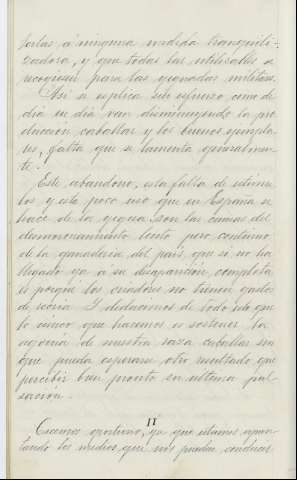 á ninguna medida tranquili-
zadora, y que todas las utilisables se
recogiesen para las yeguadas militares.
Así se esplica sin esfuerzo, como de
dia en dia van disminuyendo la pro
duccion caballar y los buenos ejempla
res, falta que se lamenta generalmen-
te.
Este abandono, esta falta de estimu
los, y este poco uso que en España se
hace de la yegua, son las causas del
desmoronamiento lento pero contínuo
de la ganaderia del país, que si no ha
llegado ya a su desaparicion completa
es porque los criadores no tienen
de Y deducimos de todo esto que
lo único que hacemos es sostener la
agonía de nuestra raza caballar sin
que pueda esperarse otro resultado que
percibir bien pronto su ultima pul
sacion.
II
Creemos oportuno, ya que estamos apun
tando los medios que nos puedan conducir